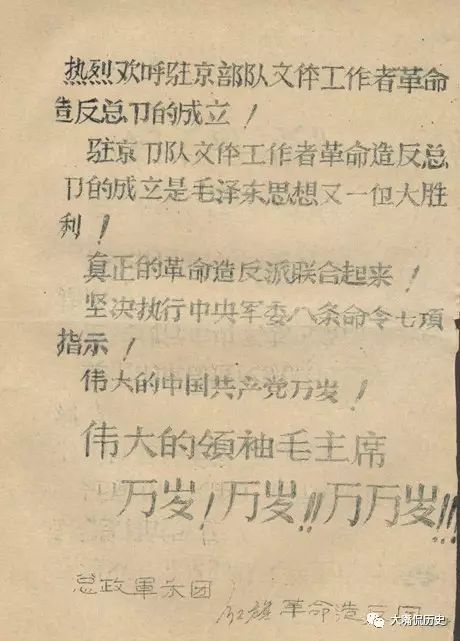 热烈欢呼驻京部队文体工作者革命
造反总卩的成立！
驻京卩队文体工作者革命造反总
卩的成立是毛泽东思想又一個大胜
利！
真正的革命造反派联合起来！
坚决执行中央军委八条命令七項
指示！
伟大的中国共产党万岁！
伟大的領袖毛主席
万岁！万岁！！万万岁！！！
总政軍乐团
红旗革命造反团
大嘴侃历史